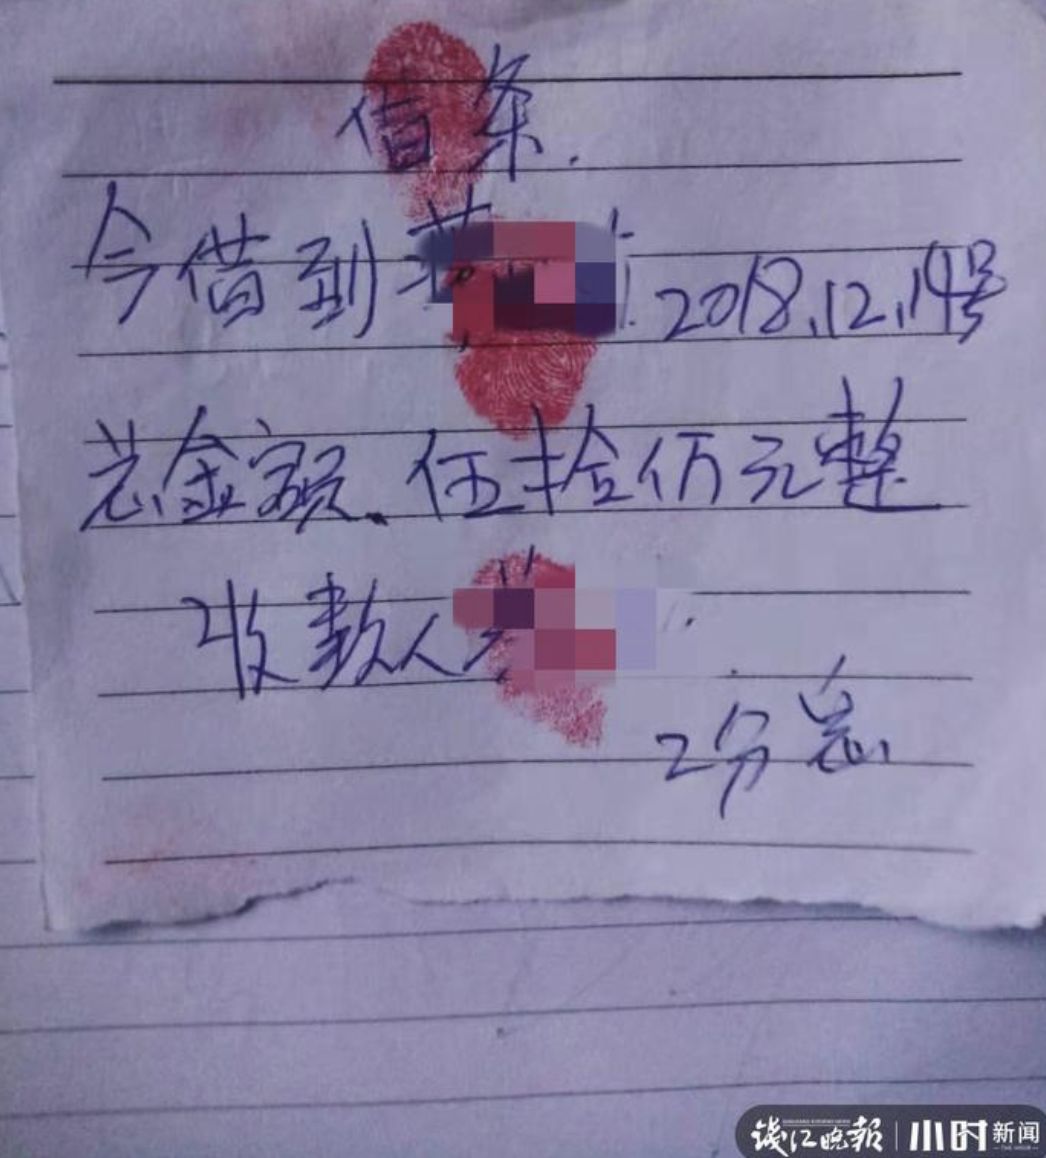 借条.
今借到 2018.12.14号
总金额.伍拾万元整
收款人
2分息.
钱江晚报 小时新闻